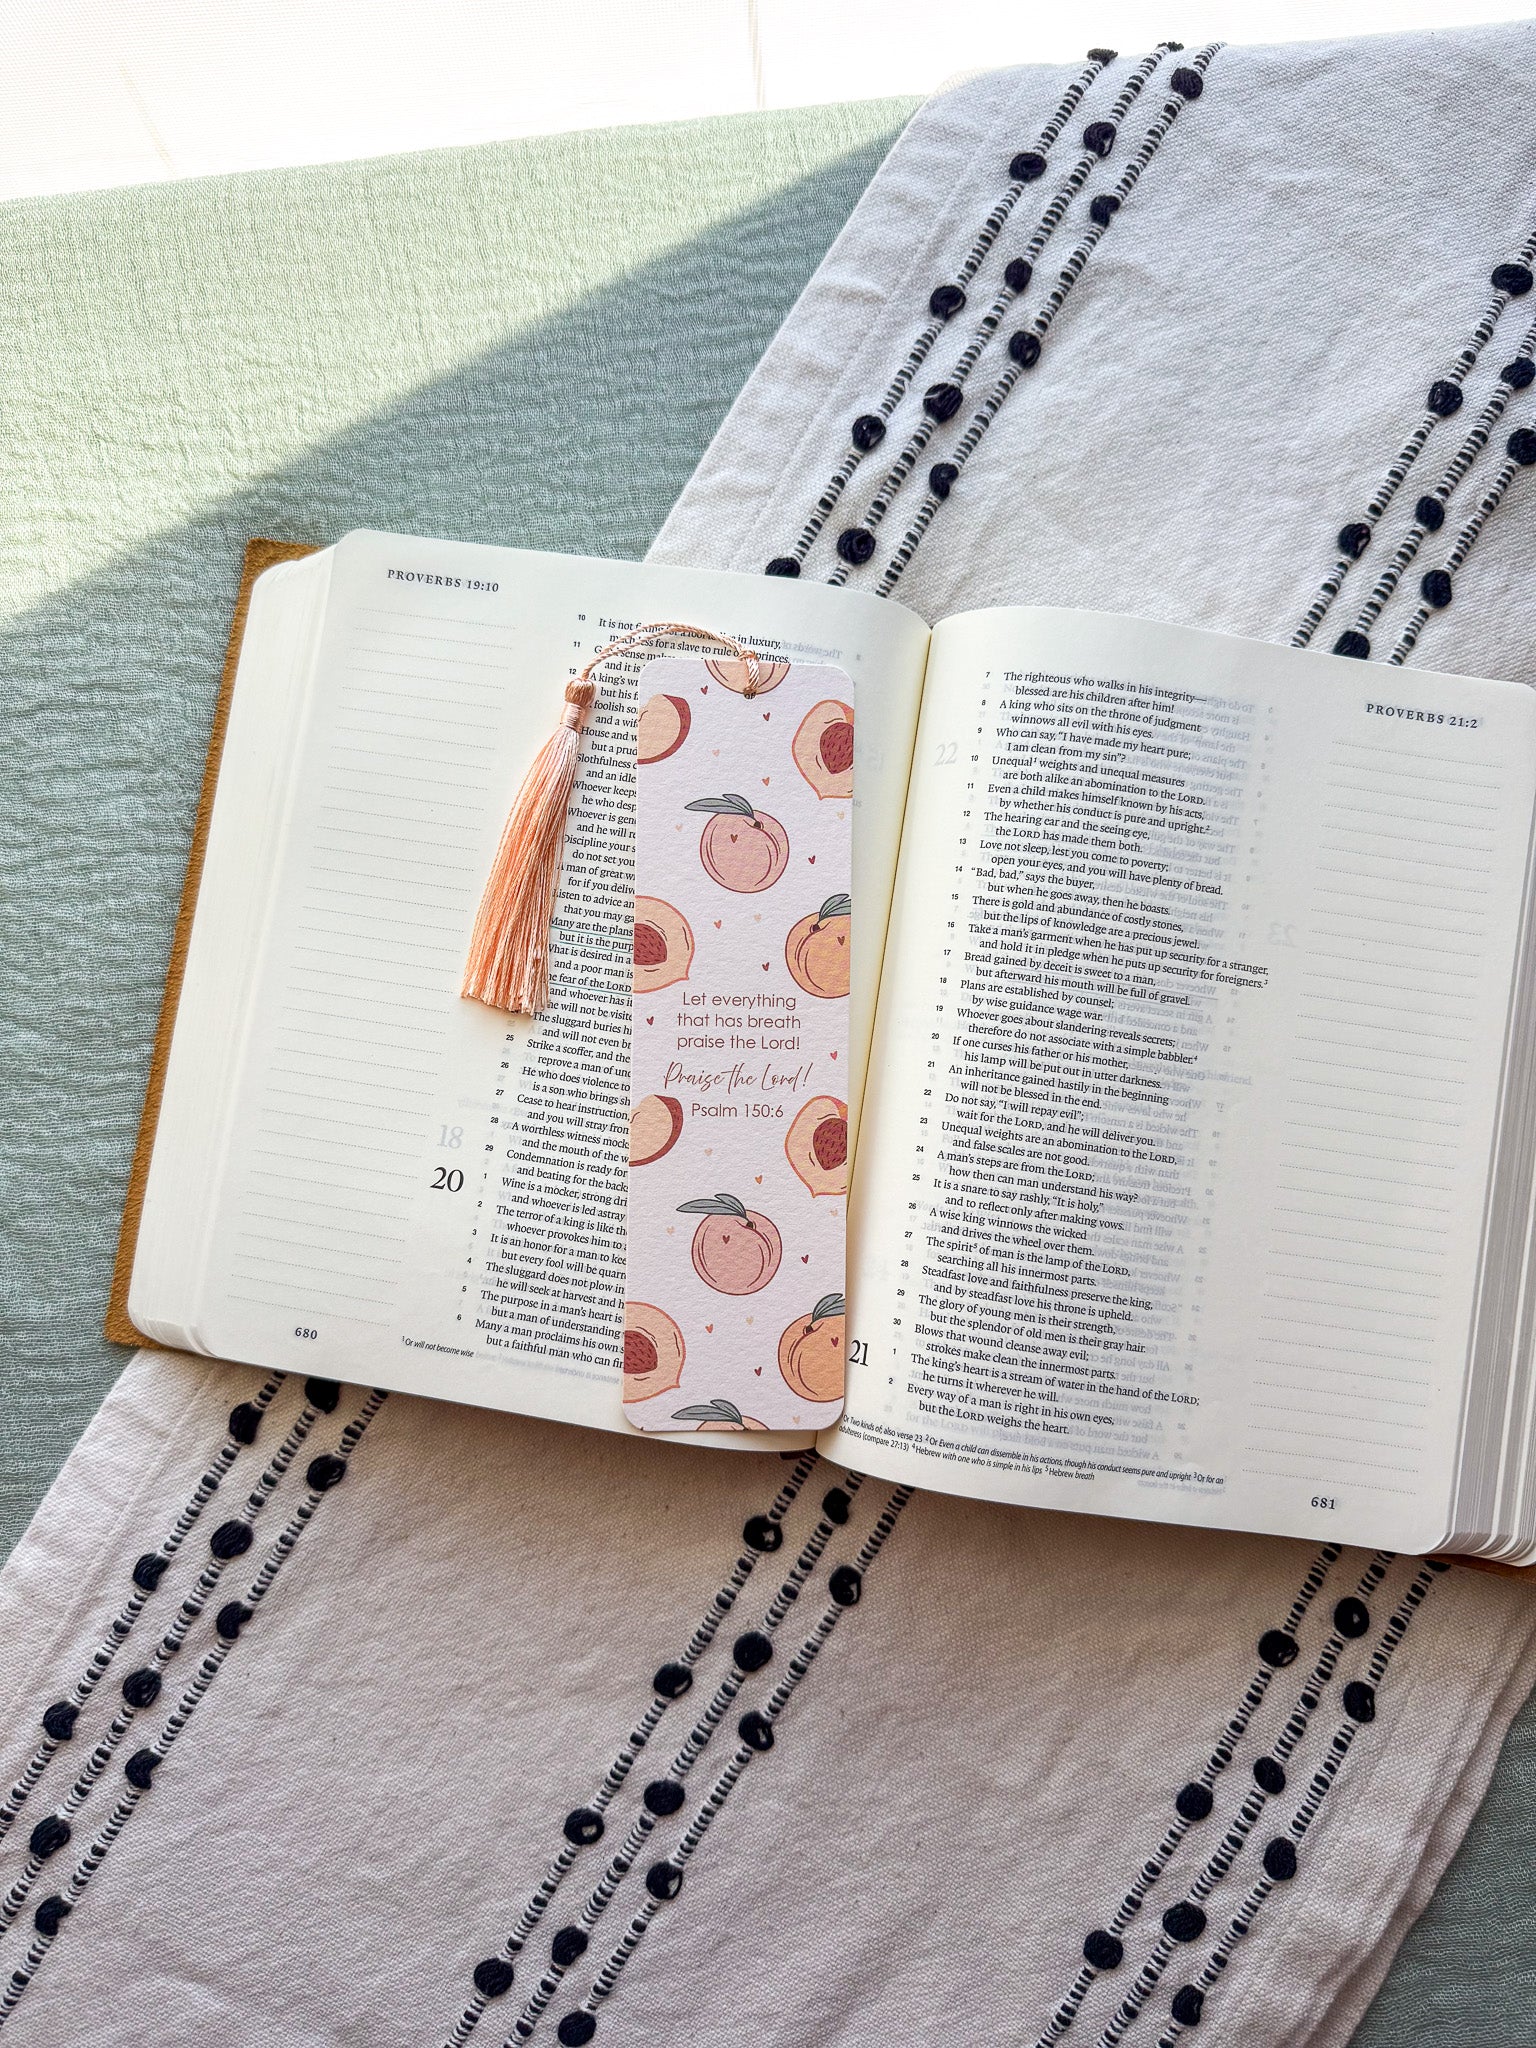 PROVERBS 19:10
10 It is not for a fool to in luxury,
much less for a slave to rule princes.
11 Good sense
and it is
12 A king's
but his
foolish
and a
House and
but a
Slothfulness
and an idle
Whoever keeps
he who
Whoever is
and he will
Discipline your
do not set you
A man of great
for if you
Listen to advice
that you may
Many are the plans
but it is the
What is desired in a
and a poor man is
The fear of the LORD
and whoever has
he will not be
The sluggard buries
and will not even
25 Strike a scoffer, and the
reprove a man of
26 He who does violence to
is a son who brings
27 Cease to hear instruction,
and you will stray from
28 A worthless witness
and the mouth of the
29 Condemnation is ready for
and beating for the
20
1 Wine is a mocker, strong
and whoever is led astray
2 The terror of a king is like the
whoever provokes him to
3 It is an honor for a man to
but every fool will be
4 The sluggard does not plow in
he will seek at harvest and
5 The purpose in a man's heart is
but a man of understanding
6 Many a man proclaims his own
but a faithful man who can
1 Or will not become wise
680
Let everything
that has breath
praise the Lord!
Praise the Lord!
Psalm 150:6
PROVERBS 21:2
7 The righteous who walks in his integrity—
blessed are his children after him!
8 A king who sits on the throne of judgment
winnows all evil with his eyes.
9 Who can say, “I have made my heart pure;
I am clean from my sin”?
10 Unequal1 weights and unequal measures
are both alike an abomination to the LORD.
11 Even a child makes himself known by his acts,
by whether his conduct is pure and upright.2
12 The hearing ear and the seeing eye,
the LORD has made them both.
13 Love not sleep, lest you come to poverty;
open your eyes, and you will have plenty of bread.
14 “Bad, bad,” says the buyer,
but when he goes away, then he boasts.
15 There is gold and abundance of costly stones,
but the lips of knowledge are a precious jewel.
16 Take a man's garment when he has put up security for a stranger,
and hold it in pledge when he puts up security for foreigners.3
17 Bread gained by deceit is sweet to a man,
but afterward his mouth will be full of gravel.
18 Plans are established by counsel;
by wise guidance wage war.
19 Whoever goes about slandering reveals secrets;
therefore do not associate with a simple babbler.4
20 If one curses his father or his mother,
his lamp will be put out in utter darkness.
21 An inheritance gained hastily in the beginning
will not be blessed in the end.
22 Do not say, “I will repay evil”;
wait for the LORD, and he will deliver you.
23 Unequal weights are an abomination to the LORD,
and false scales are not good.
24 A man's steps are from the LORD;
how then can man understand his way?
25 It is a snare to say rashly, “It is holy,”
and to reflect only after making vows.
26 A wise king winnows the wicked
and drives the wheel over them.
27 The spirit5 of man is the lamp of the LORD,
searching all his innermost parts.
28 Steadfast love and faithfulness preserve the king,
and by steadfast love his throne is upheld.
29 The glory of young men is their strength,
but the splendor of old men is their gray hair.
30 Blows that wound cleanse away evil;
strokes make clean the innermost parts.
21
1 The king's heart is a stream of water in the hand of the LORD;
he turns it wherever he will.
2 Every way of a man is right in his own eyes,
but the LORD weighs the heart.
Or Two kinds of; also verse 23 2 Or Even a child can dissemble in his actions, though his conduct seems pure and upright 3 Or for an
adulteress (compare 27:13) 4 Hebrew with one who is simple in his lips 5 Hebrew breath
681